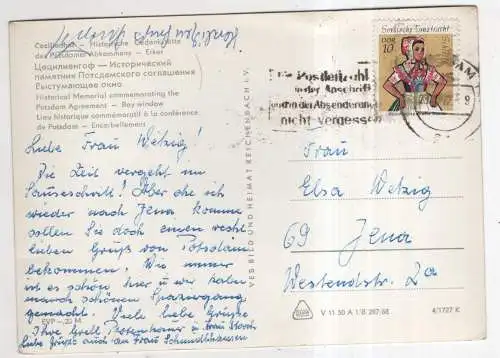 Herzlichen Gruß
Cecilienhof — Historische Gedenkstätte
des Potsdamer Abkommens — Erker
Цецилиенгоф — Исторический
памятник Потсдамского соглашения
Выступающее окно
Historical Memorial commemorating the
Potsdam Agreement — Bay window
Lieu historique commémoratif à la conférence
de Potsdam — Encorbellement
Sorbische Tanztracht
DDR
10
Die Postleitzahl
in der Anschrift
und in der Absenderangabe
nicht vergessen
Liebe Frau Welzig!
Die Zeit vergeht im
Sauseschritt! Aber ehe ich
wieder nach Jena komme
sollen Sie doch einen recht
lieben Gruß von Potsdam
bekommen. Wie immer
ist es schön hier u wir haben
manch schönen Spaziergang
gemacht. Viele liebe Grüße
Ihre Grell u Frau Storch
Liebe Grüße auch an Frau
EVP
M
VEB BILD UND HEIMAT REICHENBACH i. V.
V 11 50 A 1/B 267/68
4/1727 K
Frau
Elsa Welzig
69 Jena
Westendstr. 2a